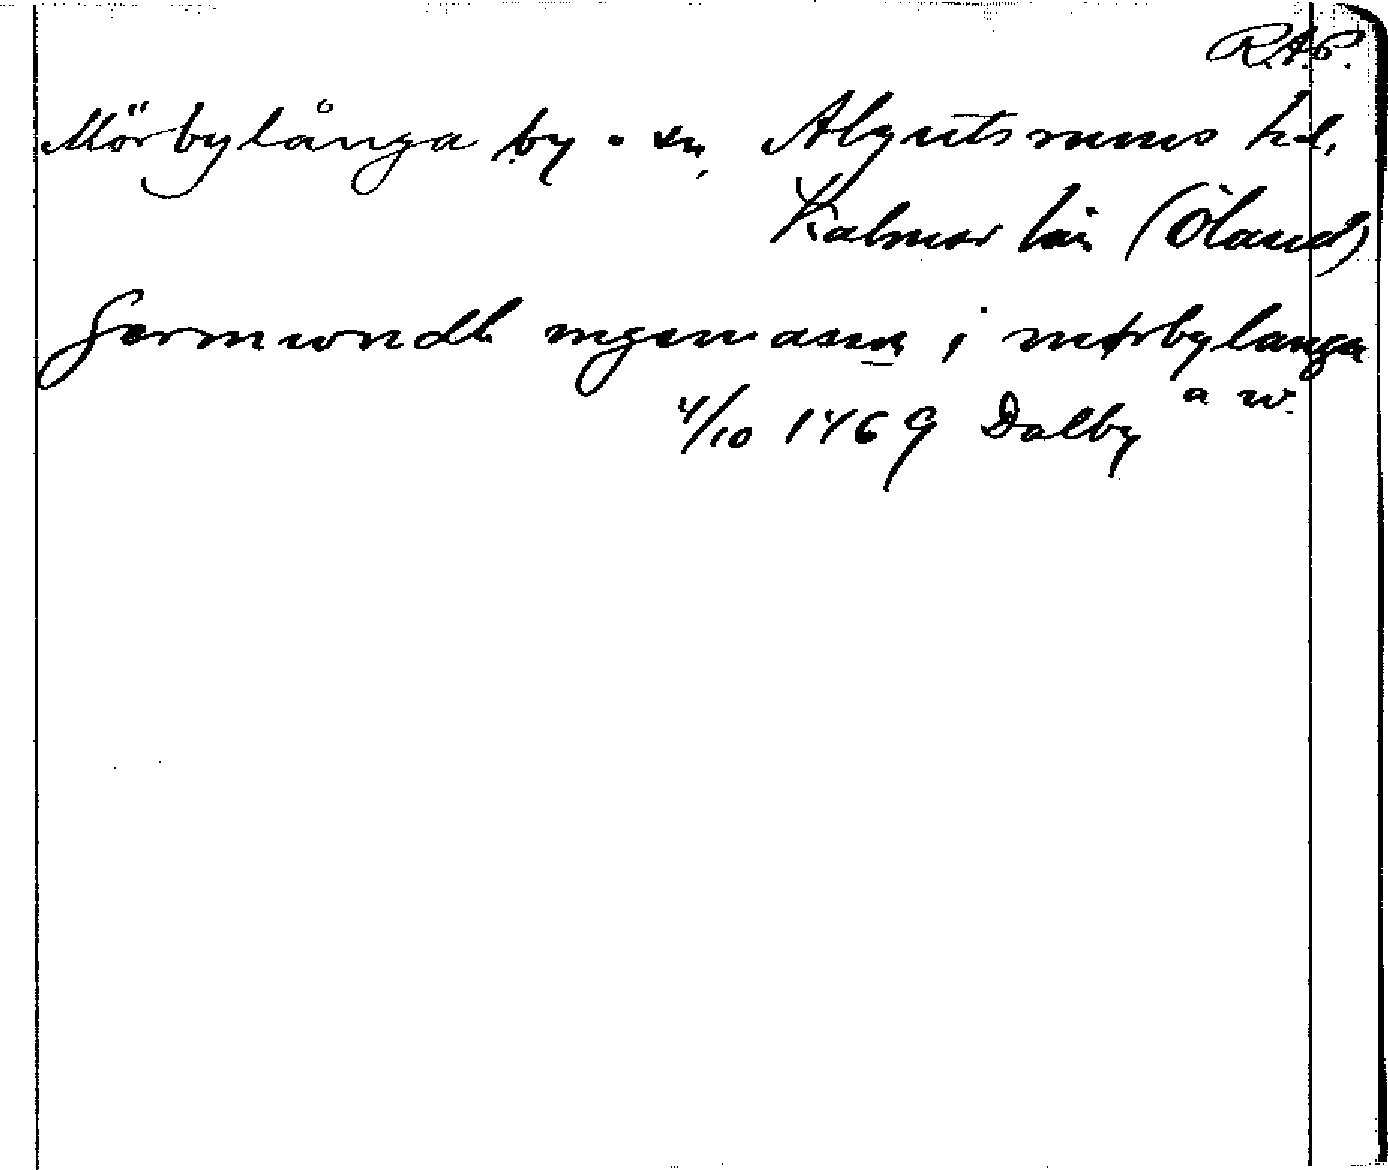 R.A.P.
Mörbylånga by o sn, Algutsrums hd,
Kalmar län (Öland)
Germwndh ingemasson i mørbylanga
4/10 1469 Dalby a w.